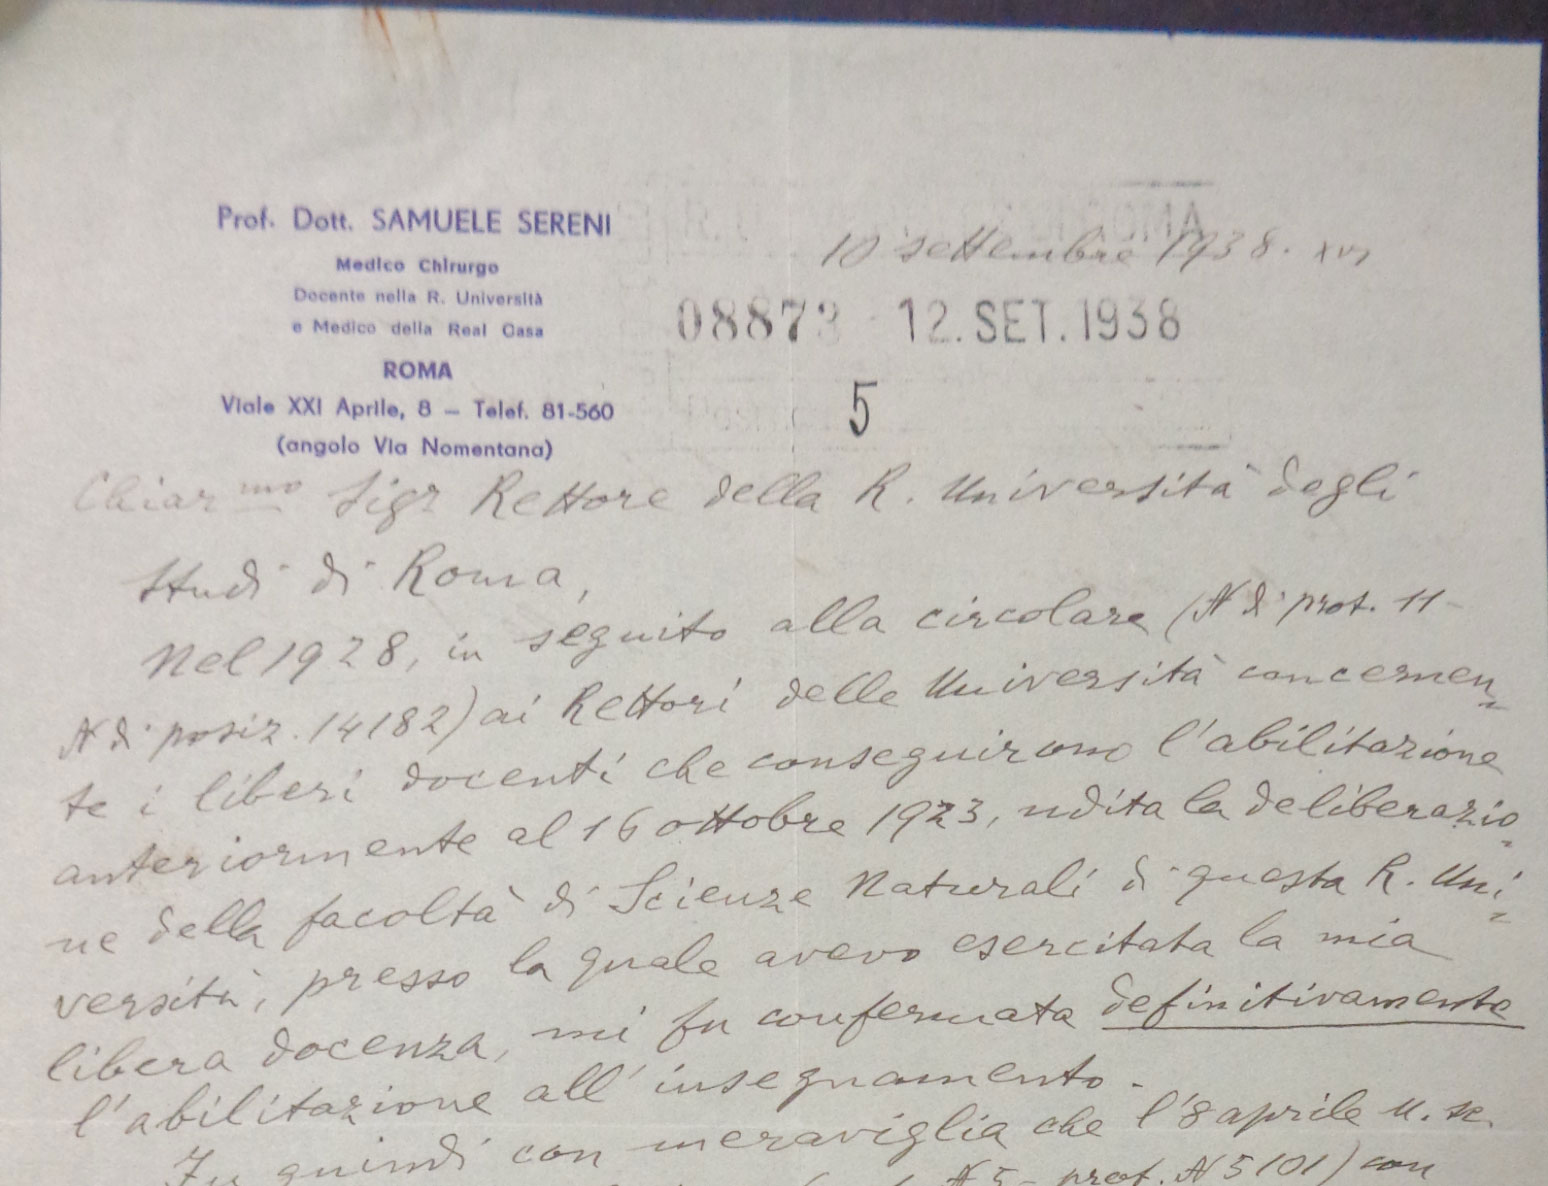 Prof. Dott. SAMUELE SERENI
Medico Chirurgo
Docente nella R. Università
e Medico della Real Casa
ROMA
Viale XXI Aprile, 8 – Telef. 81-560
(angolo Via Nomentana)
ROMA
10 settembre 1938. XVI
08873 12. SET. 1938
5
Chiar.mo Sigr Rettore della R. Università degli
Studi di Roma,
Nel 1928, in seguito alla circolare (N di prot. 11-
N di posiz. 14182) ai Rettori delle Università concernen-
te i liberi docenti che conseguirono l'abilitazione
anteriormente al 16 ottobre 1923, udita la deliberazio-
ne della facoltà di Scienze Naturali di questa R. Uni-
versità, presso la quale avevo esercitata la mia
libera docenza, mi fu confermata definitivamente
l'abilitazione all'insegnamento.
Fu quindi con meraviglia che l'8 aprile u. sc.
N 5 - prot. N 5101) con